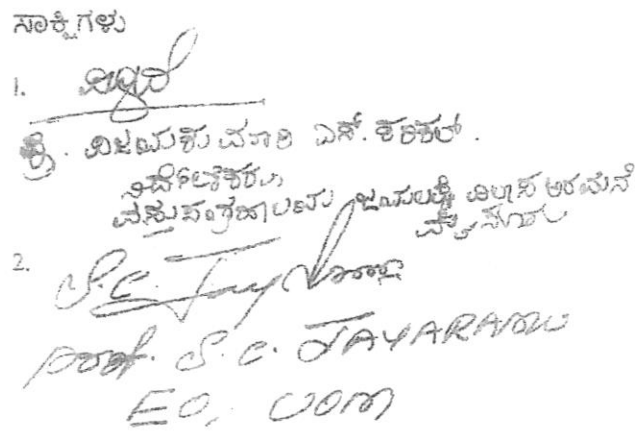 ಸಾಕ್ಷಿಗಳು
1.
ಶ್ರೀ. ವಿಜಯಕುಮಾರಿ ಎಸ್. ಕರಿಕಲ್.
ನಿರ್ದೇಶಕರು
ವಸ್ತುಸಂಗ್ರಹಾಲಯ ಜಯಲಕ್ಷ್ಮಿ ವಿಲಾಸ ಅರಮನೆ
ಮೈಸೂರು
2. S.C. Jay
Prof. S. C. JAYARAMU
EO, UOM